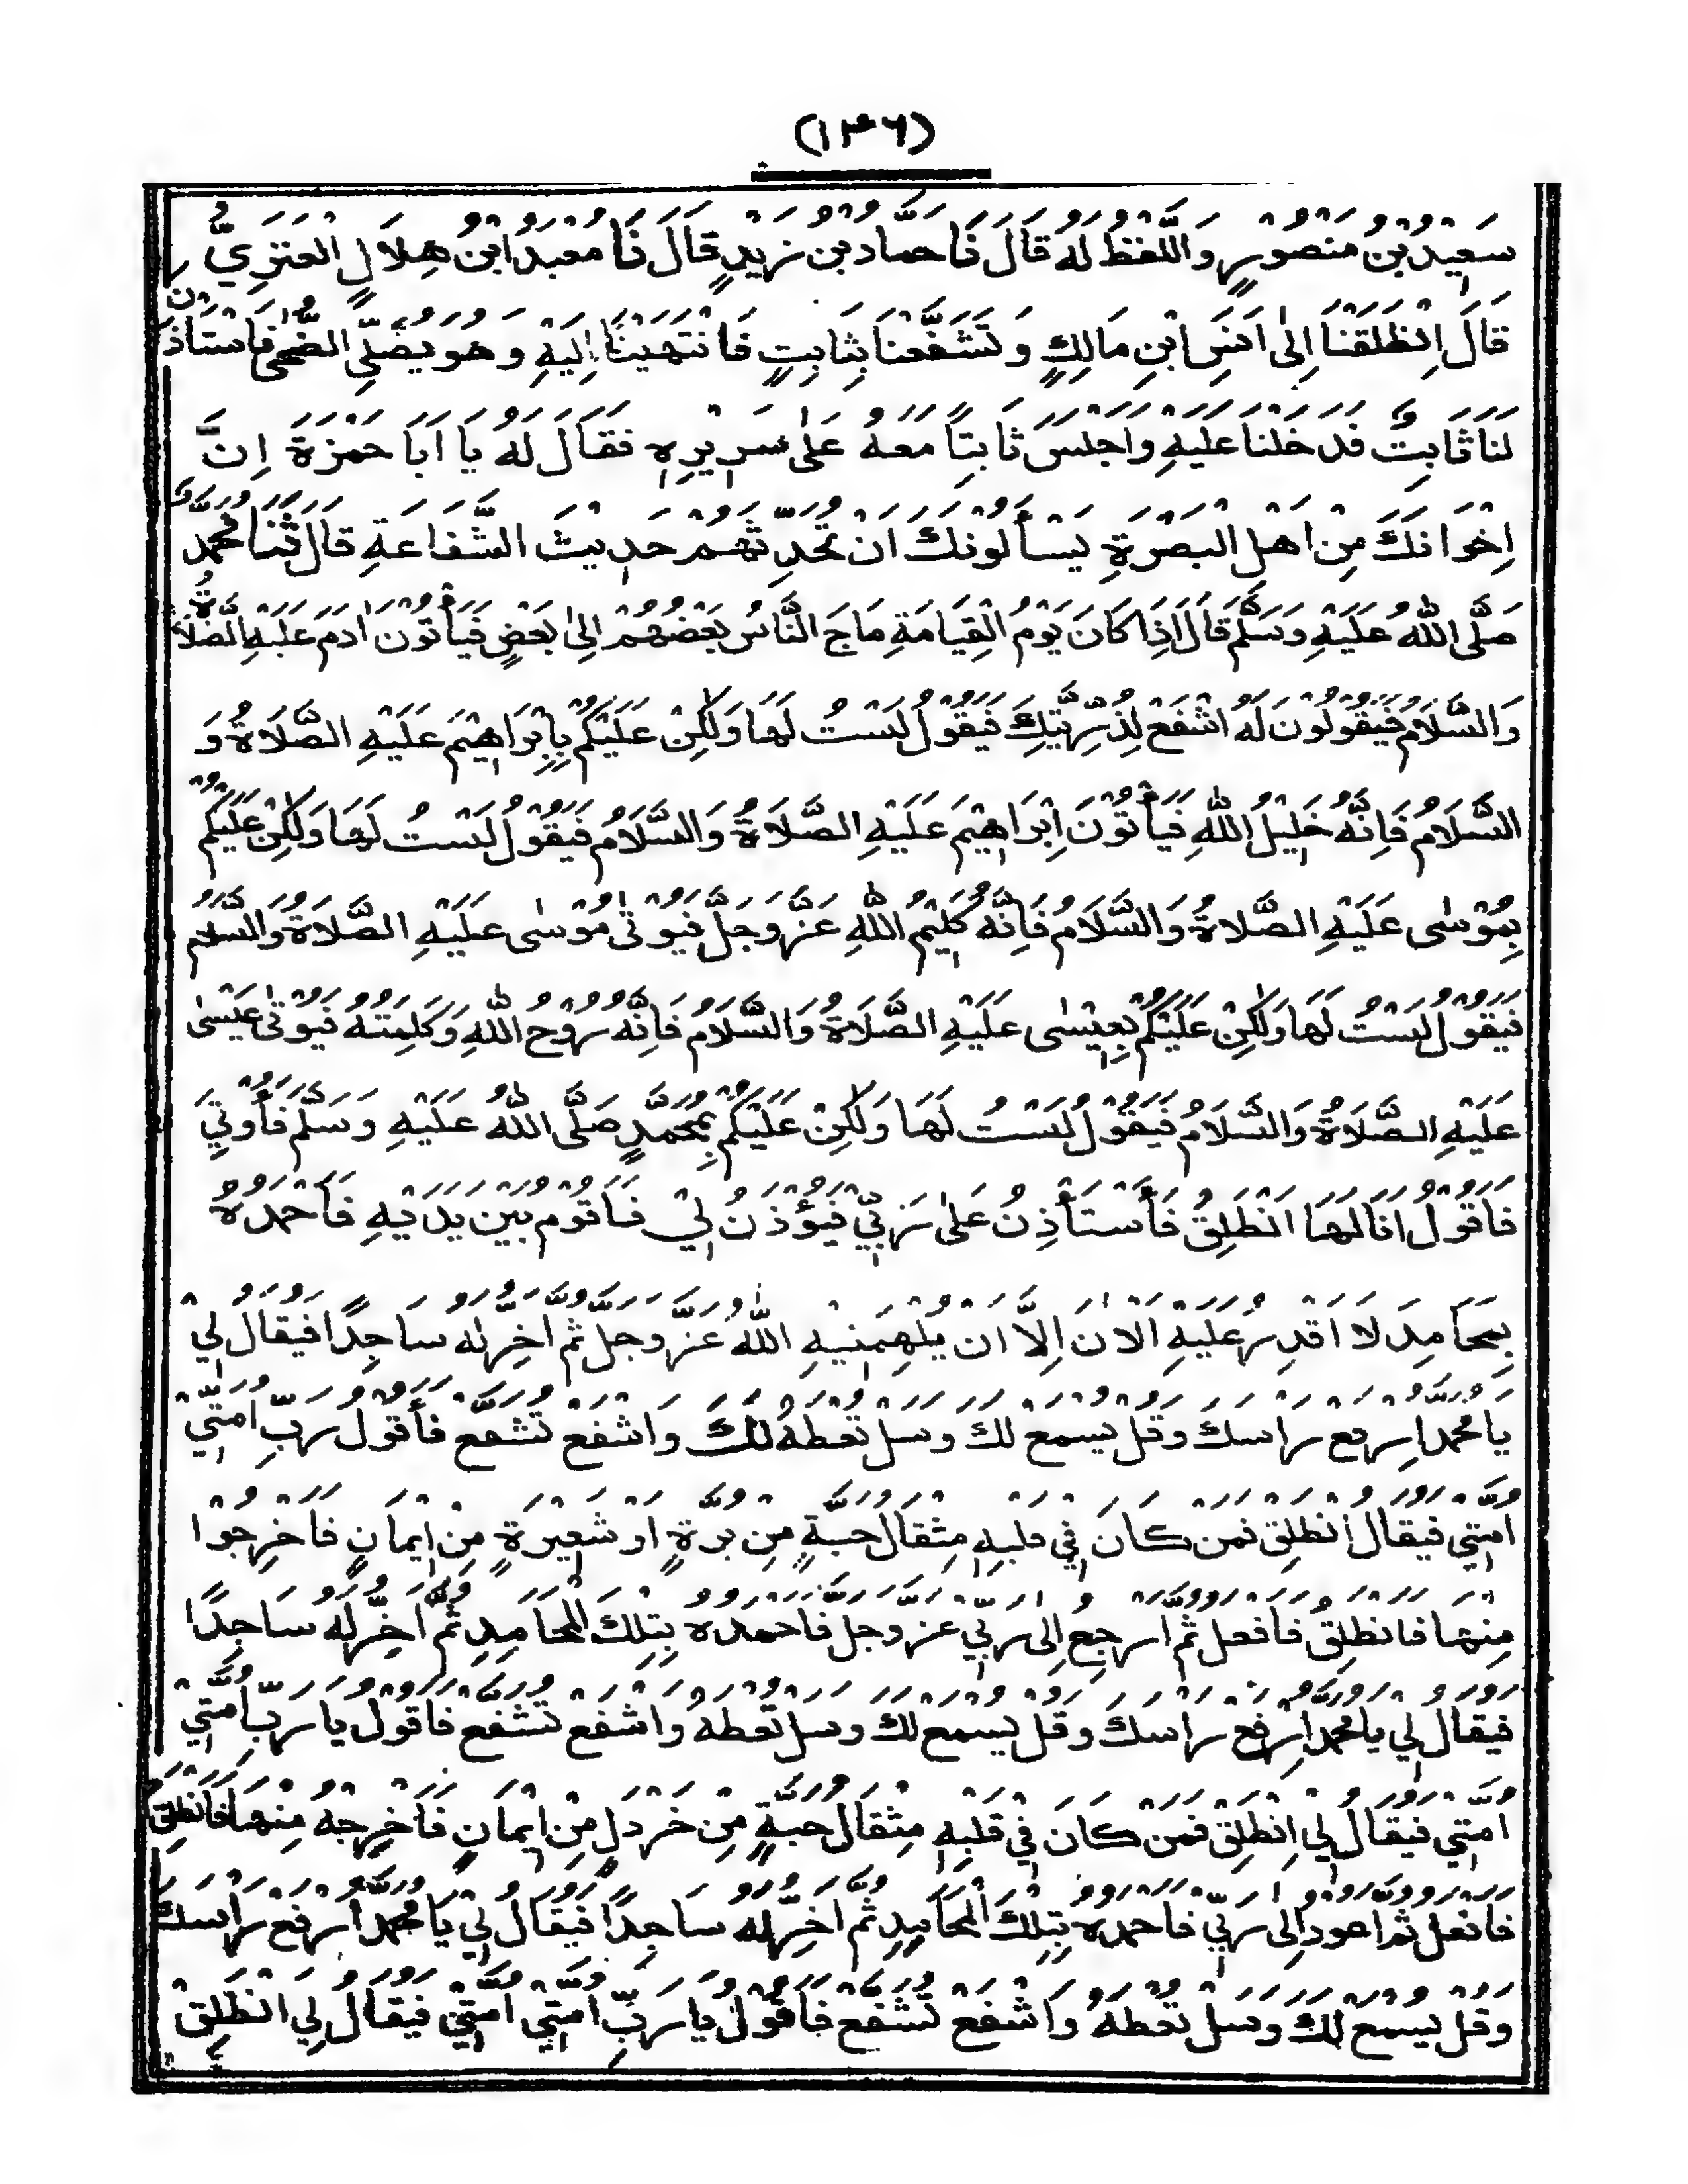 (١٣٦)
سَعِيْدُ بْنُ مَنْصُوْرٍ وَاللَّفْظُ لَهُ قَالَ نَا حَمَّادُ بْنُ زَيْدٍ قَالَ نَا مَعْبَدُ ابْنُ هِلَالٍ الْعَنَزِيُّ
قَالَ اِنْطَلَقْنَا اِلٰى اَنَسِ ابْنِ مَالِكٍ وَتَشَفَّعْنَا بِثَابِتٍ فَانْتَهَيْنَا اِلَيْهِ وَهُوَ يُصَلِّي الضُّحٰى فَاسْتَأذَنَ
لَنَا ثَابِتٌ فَدَخَلْنَا عَلَيْهِ وَاَجْلَسَ ثَابِتًا مَعَهُ عَلٰى سَرِيْرِهِ فَقَالَ لَهُ يَا اَبَا حَمْزَةَ اِنَّ
اِخْوَانَكَ مِنْ اَهْلِ الْبَصْرَةِ يَسْأَلُوْنَكَ اَنْ تُحَدِّثَهُمْ حَدِيْثَ الشَّفَاعَةِ قَالَ ثَنَا مُحَمَّدٌ
صَلَّى اللّٰهُ عَلَيْهِ وَسَلَّمَ قَالَ اِذَا كَانَ يَوْمُ الْقِيَامَةِ مَاجَ النَّاسُ بَعْضُهُمْ اِلٰى بَعْضٍ فَيَأْتُوْنَ اٰدَمَ عَلَيْهِ الصَّلَاةُ
وَالسَّلَامُ فَيَقُوْلُوْنَ لَهُ اشْفَعْ لِذُرِّيَّتِكَ فَيَقُوْلُ لَسْتُ لَهَا وَلٰكِنْ عَلَيْكُمْ بِاِبْرَاهِيْمَ عَلَيْهِ الصَّلَاةُ وَ
السَّلَامُ فَاِنَّهُ خَلِيْلُ اللّٰهِ فَيَأْتُوْنَ اِبْرَاهِيْمَ عَلَيْهِ الصَّلَاةُ وَالسَّلَامُ فَيَقُوْلُ لَسْتُ لَهَا وَلٰكِنْ عَلَيْكُمْ
بِمُوْسٰى عَلَيْهِ الصَّلَاةُ وَالسَّلَامُ فَاِنَّهُ كَلِيْمُ اللّٰهِ عَزَّ وَجَلَّ فَيُوْتٰى مُوْسٰى عَلَيْهِ الصَّلَاةُ وَالسَّلَامُ
فَيَقُوْلُ لَسْتُ لَهَا وَلٰكِنْ عَلَيْكُمْ بِعِيْسٰى عَلَيْهِ الصَّلَاةُ وَالسَّلَامُ فَاِنَّهُ رُوْحُ اللّٰهِ وَكَلِمَتُهُ فَيُوْتٰى عِيْسٰى
عَلَيْهِ الصَّلَاةُ وَالسَّلَامُ فَيَقُوْلُ لَسْتُ لَهَا وَلٰكِنْ عَلَيْكُمْ بِمُحَمَّدٍ صَلَّى اللّٰهُ عَلَيْهِ وَسَلَّمَ فَأُوْتِيَ
فَاَقُوْلُ اَنَا لَهَا اَنْطَلِقُ فَأَسْتَأْذِنُ عَلٰى رَبِّيْ فَيُؤْذَنُ لِيْ فَاَقُوْمُ بَيْنَ يَدَيْهِ فَاَحْمَدُهُ
بِمَحَامِدَ لَا اَقْدِرُ عَلَيْهِ الْاٰنَ اِلَّا اَنْ يُلْهِمَنِيْهِ اللّٰهُ عَزَّ وَجَلَّ ثُمَّ اَخِرُّ لَهُ سَاجِدًا فَيُقَالُ لِيْ
يَا مُحَمَّدُ اِرْفَعْ رَاسَكَ وَقُلْ يُسْمَعْ لَكَ وَسَلْ تُعْطَهْ لَكَ وَاشْفَعْ تُشَفَّعْ فَأَقُوْلُ رَبِّ اُمَّتِيْ
اُمَّتِيْ فَيُقَالُ اِنْطَلِقْ فَمَنْ كَانَ فِيْ قَلْبِهِ مِثْقَالُ حَبَّةٍ مِنْ بُرَّةٍ اَوْ شَعِيْرَةٍ مِنْ اِيْمَانٍ فَاَخْرِجُوْا
مِنْهَا فَانْطَلِقُ فَافْعَلُ ثُمَّ اَرْجِعُ اِلٰى رَبِّيْ عَزَّ وَجَلَّ فَاَحْمَدُهُ بِتِلْكَ الْمَحَامِدِ ثُمَّ اَخِرُّ لَهُ سَاجِدًا
فَيُقَالُ لِيْ يَا مُحَمَّدُ اِرْفَعْ رَاسَكَ وَقُلْ يُسْمَعْ لَكَ وَسَلْ تُعْطَهُ وَاشْفَعْ تُشَفَّعْ فَاَقُوْلُ يَا رَبِّ اُمَّتِيْ
اُمَّتِيْ فَيُقَالُ لِيْ اِنْطَلِقْ فَمَنْ كَانَ فِيْ قَلْبِهِ مِثْقَالُ حَبَّةٍ مِنْ خَرْدَلٍ مِنْ اِيْمَانٍ فَاَخْرِجْهُ مِنْهَا فَانْطَلِقُ
فَافْعَلُ ثُمَّ اَعُوْدُ اِلٰى رَبِّيْ فَاَحْمَدُهُ بِتِلْكَ الْمَحَامِدِ ثُمَّ اَخِرُّ لَهُ سَاجِدًا فَيُقَالُ لِيْ يَا مُحَمَّدُ اِرْفَعْ رَاسَكَ
وَقُلْ يُسْمَعْ لَكَ وَسَلْ تُعْطَهُ وَاشْفَعْ تُشَفَّعْ فَاَقُوْلُ يَا رَبِّ اُمَّتِيْ اُمَّتِيْ فَيُقَالُ لِي انْطَلِقْ